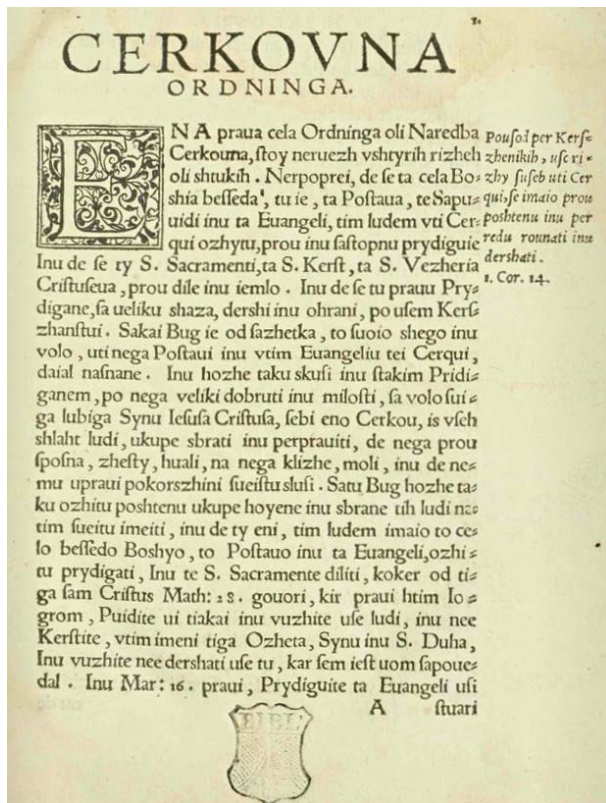 1.
CERKOVNA
ORDNINGA.
ENA praua cela Ordninga oli Naredba
Cerkouna, ſtoy neruezh vshtyrih rizheh
oli shtukih. Nerpoprei, de ſe ta cela Bo⸗
shia beſſeda', tu ie, ta Poſtaua, te Sapu⸗
uidi inu ta Euangeli, tim ludem vti Cer⸗
qui ozhytu, prou inu ſaſtopnu prydiguie
Inu de ſe ty S. Sacramenti, ta S. Kerſt, ta S. Vezheria
Criſtuſeua, prou dile inu iemlo. Inu de ſe tu prauu Pry⸗
digane, ſa ueliku shaza, dershi inu ohrani, po uſem Kerſ⸗
zhanſtui. Sakai Bug ie od ſazhetka, to ſuoio shego inu
volo, uti nega Poſtaui inu vtim Euangeliu tei Cerqui,
daial naſnane. Inu hozhe taku skuſi inu ſtakim Pridi⸗
ganem, po nega veliki dobruti inu miloſti, ſa volo ſui⸗
ga lubiga Synu Ieſuſa Criſtuſa, ſebi eno Cerkou, is vſeh
shlaht ludi, ukupe sbrati inu perprauiti, de nega prou
ſpoſna, zheſty, huali, na nega klizhe, moli, inu de ne⸗
mu upraui pokorszhini ſueiſtu sluſi. Satu Bug hozhe ta⸗
ku ozhitu poshtenu ukupe hoyene inu sbrane tih ludi na⸗
tim ſueitu imeiti, inu de ty eni, tim ludem imaio to ce⸗
lo beſſedo Boshyo, to Poſtauo inu ta Euangeli, ozhi⸗
tu prydigati, Inu te S. Sacramente diliti, koker od ti⸗
ga ſam Criſtus Math: 28. gouori, kir praui htim Io⸗
grom, Puidite ui tiakai inu vuzhite uſe ludi, inu nee
Kerſtite, vtim imeni tiga Ozheta, Synu inu S. Duha,
Inu vuzhite nee dershati uſe tu, kar ſem ieſt uom ſapoue⸗
dal. Inu Mar: 16. praui, Prydiguite ta Euangeli uſi
A ſtuari
Pouſod per Kerſ⸗
zhenikih, uſe ri⸗
zhy ſuſeb uti Cer
qui, ſe imaio prou
poshtenu inu per
redu rounati inu
dershati.
1. Cor. 14.
BIBL